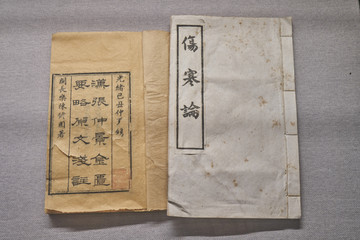 傷寒論
光緒己丑仲夏鐫
漢張仲景金匱
要略淺文淺註
閩長樂陳修園著